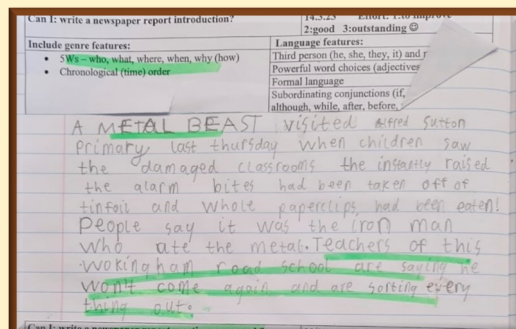 Can I: write a newspaper report introduction?
14.3.23 Effort: 1:to improve
2:good 3:outstanding ☺
Include genre features:
• 5Ws – who, what, where, when, why (how)
• Chronological (time) order
Language features:
Third person (he, she, they, it) and
Powerful word choices (adjectives
Formal language
Subordinating conjunctions (if,
although, while, after, before,
A METAL BEAST visited Alfred Sutton
Primary last thursday when children saw
the damaged classrooms the instantly raised
the alarm bites had been taken off of
tinfoil and whole paperclips had been eaten!
People say it was the iron man
who ate the metal. Teachers of this
wokingham road school are saying he
won't come again and are sorting every
thing out.